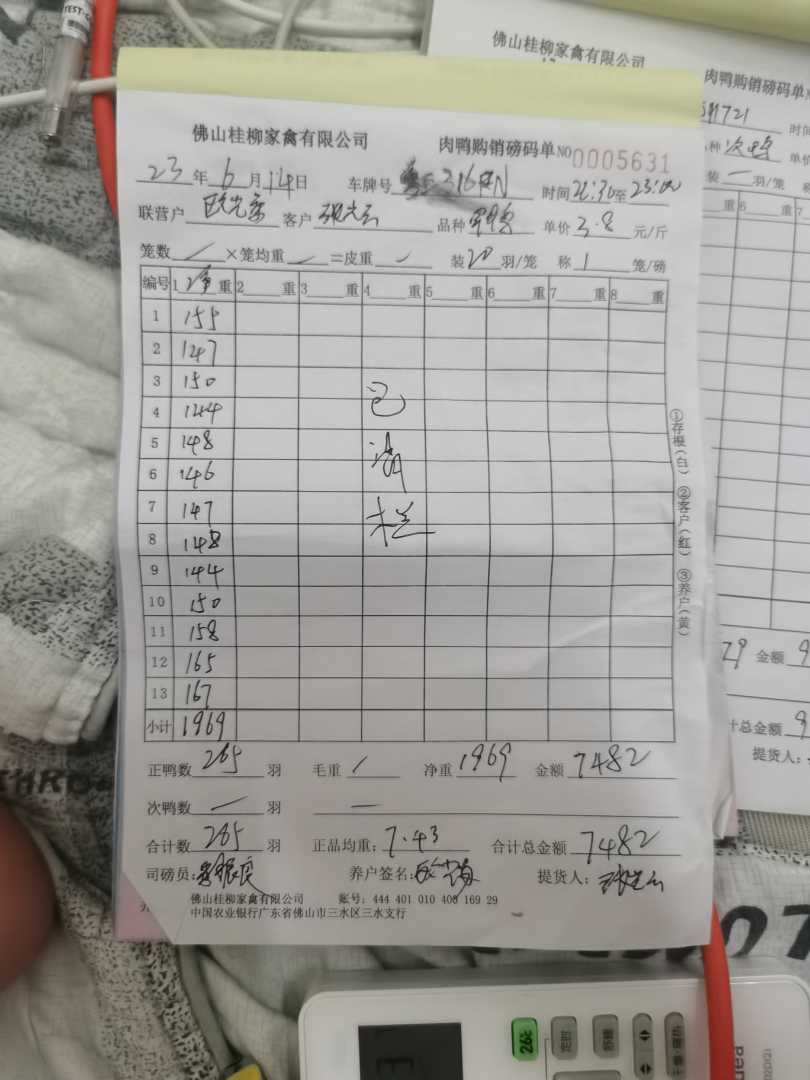 佛山桂柳家禽有限公司 肉鸭购销磅码单 NO 0005631
23年6月14日 车牌号 时间 至23:00
联营户 客户 品种 单价3.8元/斤
笼数 / ×笼均重 / =皮重 / 装20羽/笼 称1笼/磅
编号 1 净重 2 重 3 重 4 重 5 重 6 重 7 重 8 重
1 155
2 147
3 150
4 144
5 148
6 146
7 147
8 148
9 144
10 150
11 158
12 165
13 167
小计 1969
已
清
栏
正鸭数 265 羽 毛重 / 净重 1969 金额 7482
次鸭数 — 羽 —
合计数 265 羽 正品均重: 7.43 合计总金额 7482
司磅员: 养户签名: 提货人:
佛山桂柳家禽有限公司 账号: 444 401 010 400 169 29
中国农业银行广东省佛山市三水区三水支行
①存根(白) ②客户(红) ③养户(黄)
佛山桂柳家禽有限公司
肉鸭购销磅码单
时间
种 次鸭 单价
装 一 羽/笼 称
重 6 重 7
29 金额 9
计总金额 9
提货人:
26℃
定时